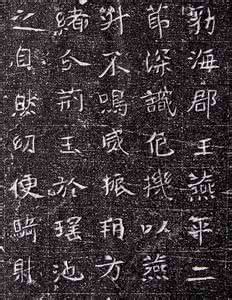 勃海郡王燕平二
節深識危機以燕
對不鳴威振朔方
緒分荊玉於瑤池
之自然幼便騎射